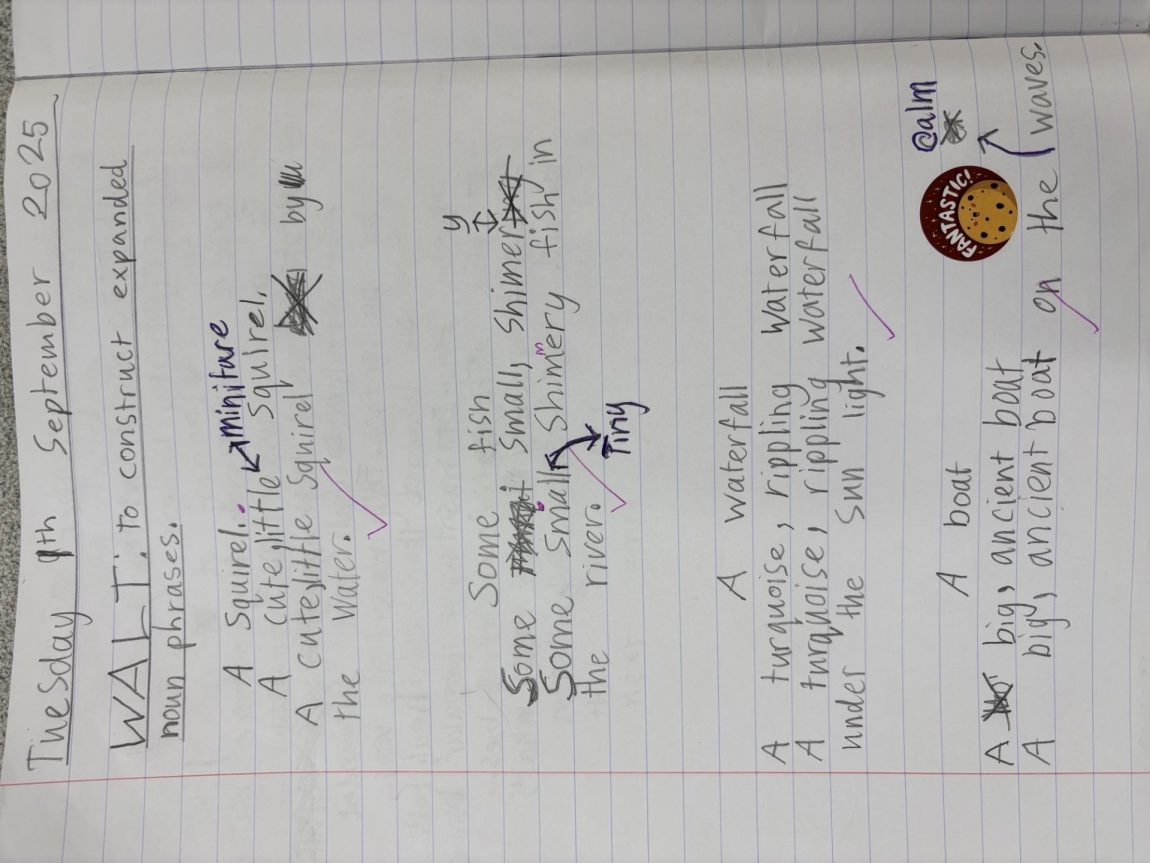 Tuesday 9th September 2025
WALT: to construct expanded
noun phrases.
A Squirel.
miniture
A cute, little Squirel.
A cute, little Squirel by
the Water.
Some fish
y
Some Small, Shimer
Some Small Shimmery fish in
the river.
Tiny
A Waterfall
A turquoise, rippling Waterfall
A turquoise, rippling waterfall
under the Sun light.
A boat
@alm
FANTASTIC!
A big, ancient boat
A big, ancient boat on the waves.